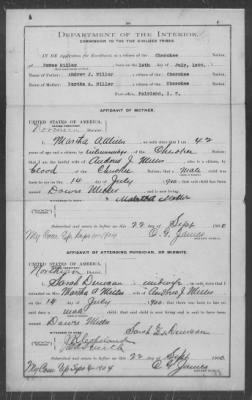 DEPARTMENT OF THE INTERIOR,
COMMISSION TO THE FIVE CIVILIZED TRIBES.
IN RE Application for Enrollment, as a citizen of the Cherokee Nation,
born on the 14th day of July, 1900,
Name of Father: Andrew J. Miller a citizen of the Cherokee Nation.
Name of Mother: Martha A. Miller a citizen of the Cherokee Nation.
Fairland, I. T.
AFFIDAVIT OF MOTHER.
UNITED STATES OF AMERICA,
INDIAN TERRITORY,
Northern District.
I, Martha A Miller, on oath state that I am 42
years of age and a citizen by intermarriage, of the Cherokee Nation;
that I am the lawful wife of Andrew J Miller, who is a citizen, by
blood of the Cherokee Nation; that a male child was
born to me on 14 day of July, 1900; that said child has been
named Miller, and is now living.
Martha A Miller
Subscribed and sworn to before me this 22 day of Sept 1900
C. G. James
AFFIDAVIT OF ATTENDING PHYSICIAN, OR MIDWIFE.
UNITED STATES OF AMERICA,
INDIAN TERRITORY,
Northern District.
I, Sarah, a midwife, on oath state that I
attended on Mrs. Martha A Miller, wife of Andrew J Miller
on the 14 day of July, 1900; that there was born to her on said
date a male child; that said child is now living and is said to have been
named Miller
Sarah
Subscribed and sworn to before me this 22 day of Sept 1900
C. G. James